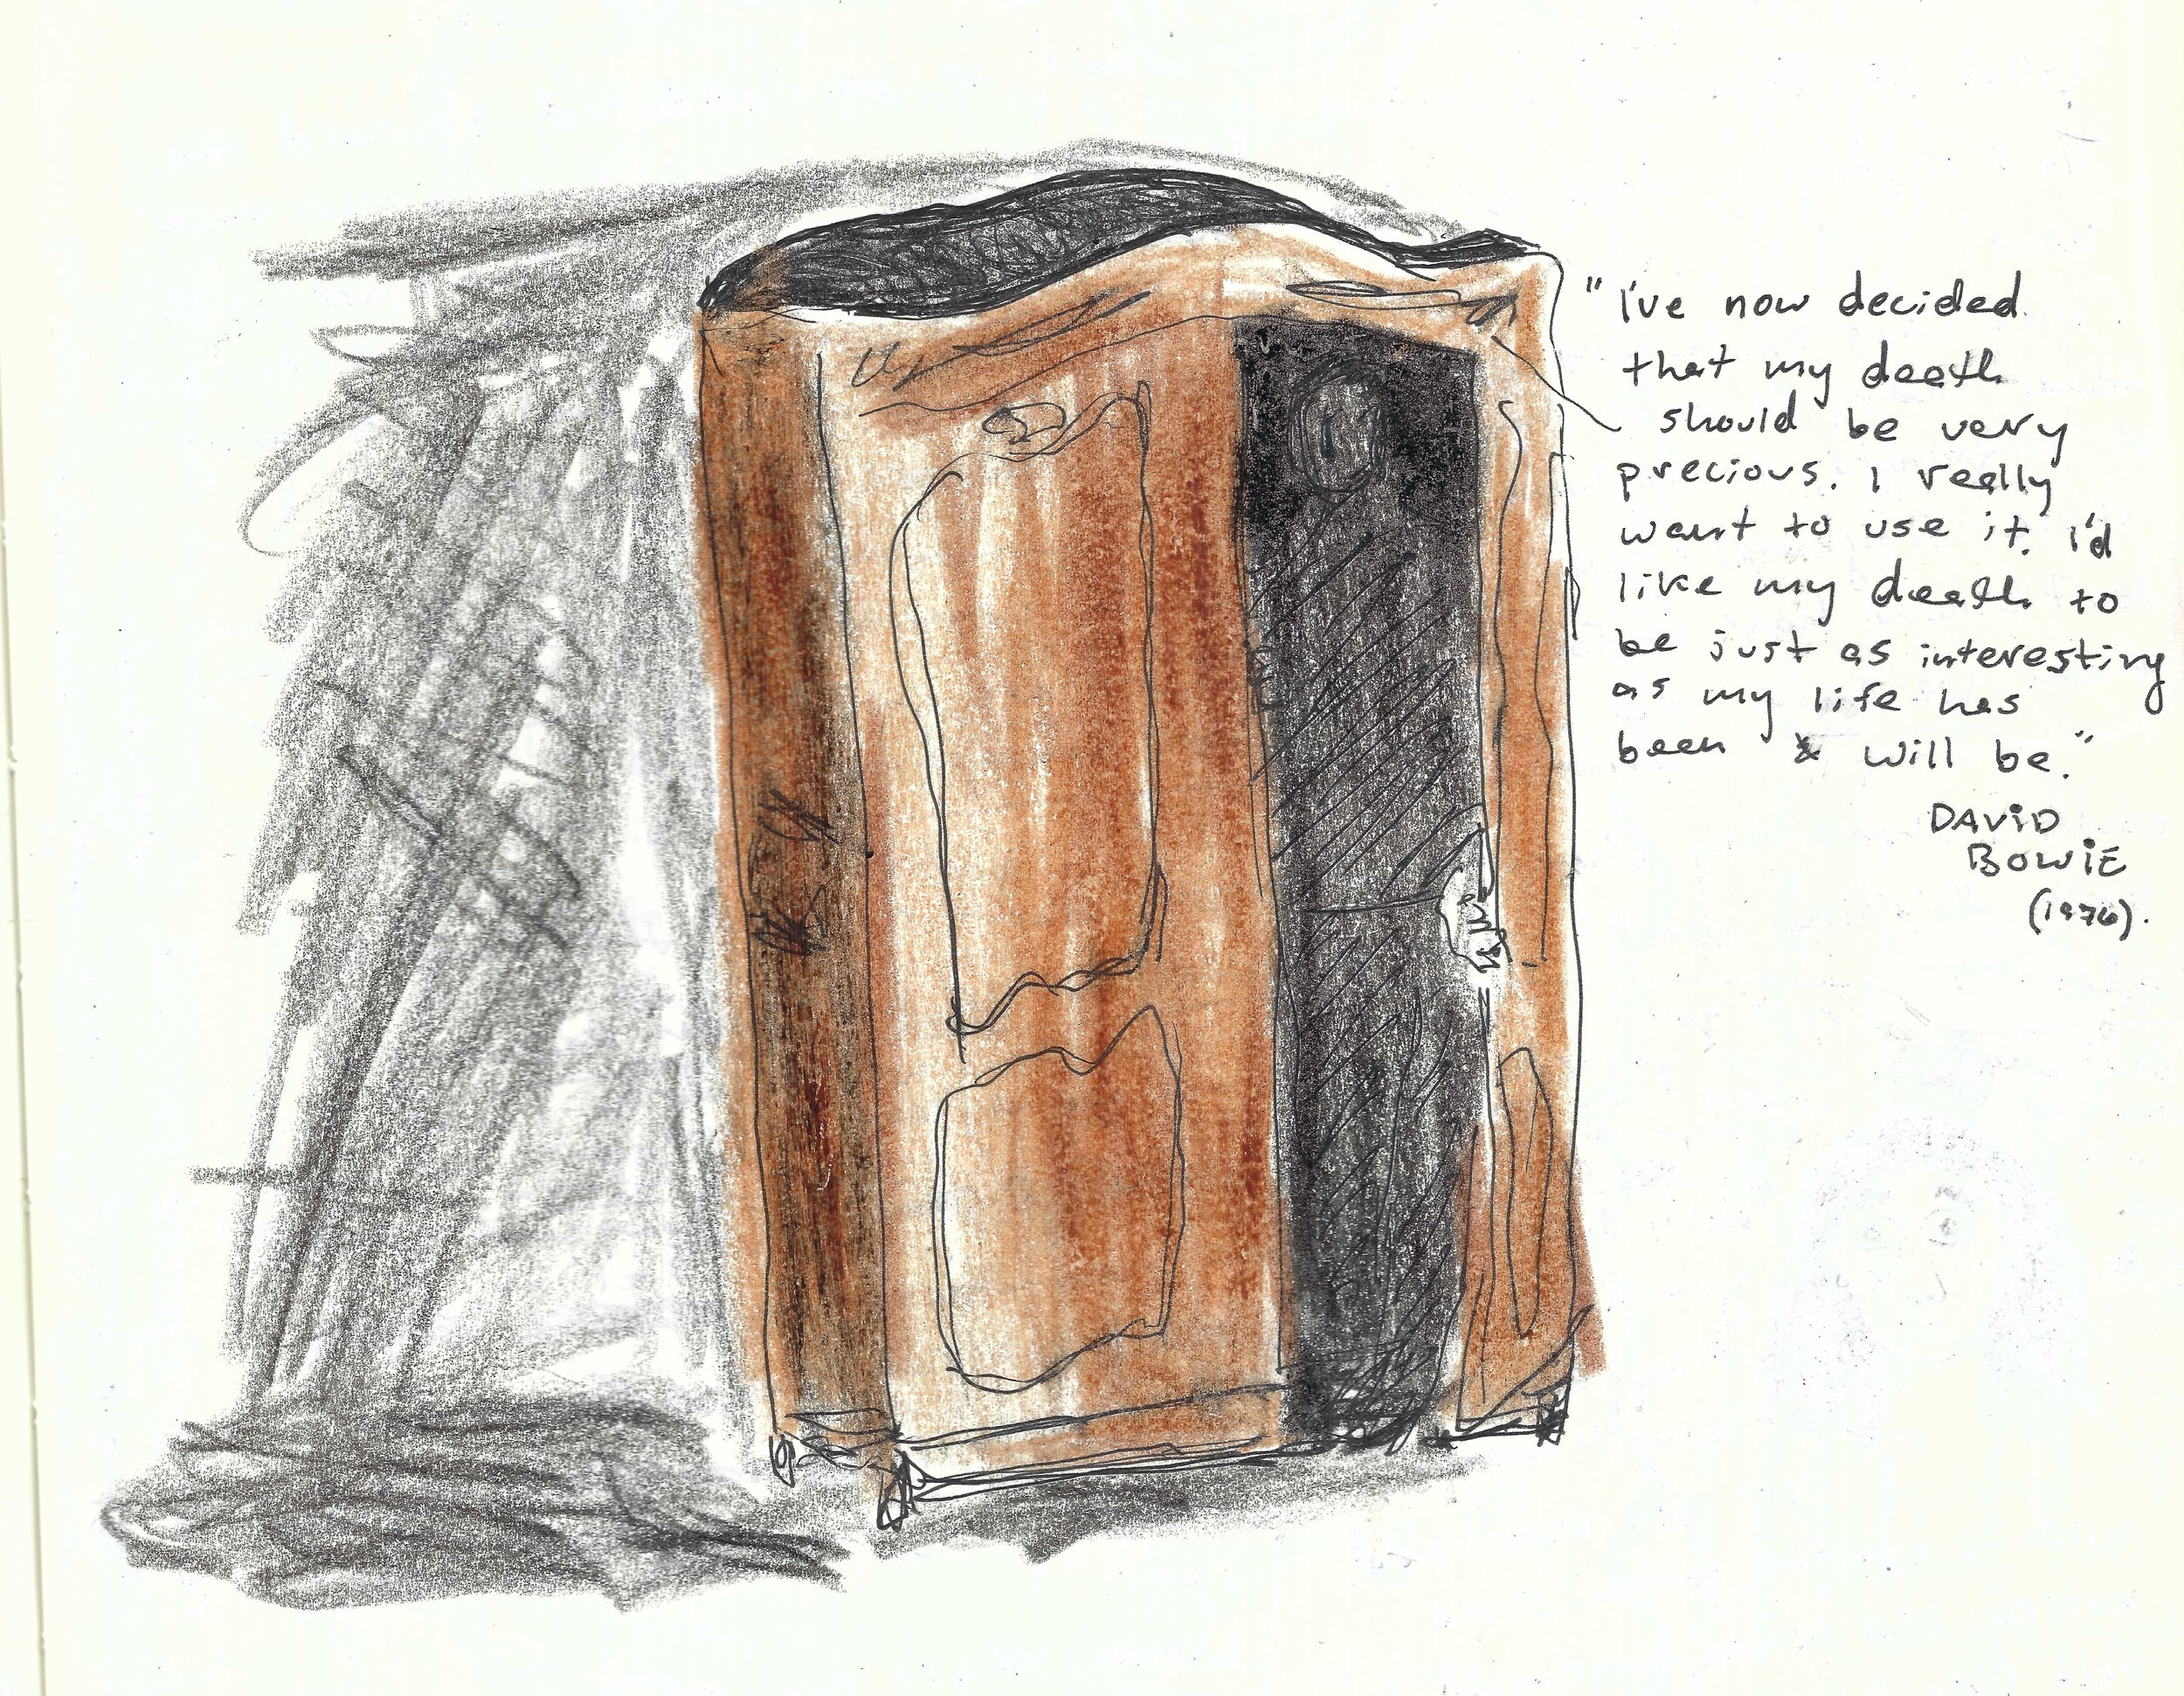 "I've now decided
that my death
should be very
precious. I really
want to use it. I'd
like my death to
be just as interesting
as my life has
been & will be."
DAVID
BOWIE
(1976).